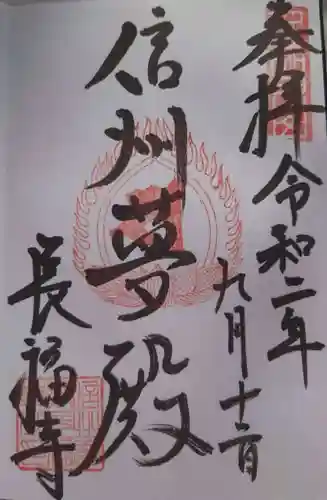 奉拝
令和二年
九月十三日
信州夢殿
長福寺